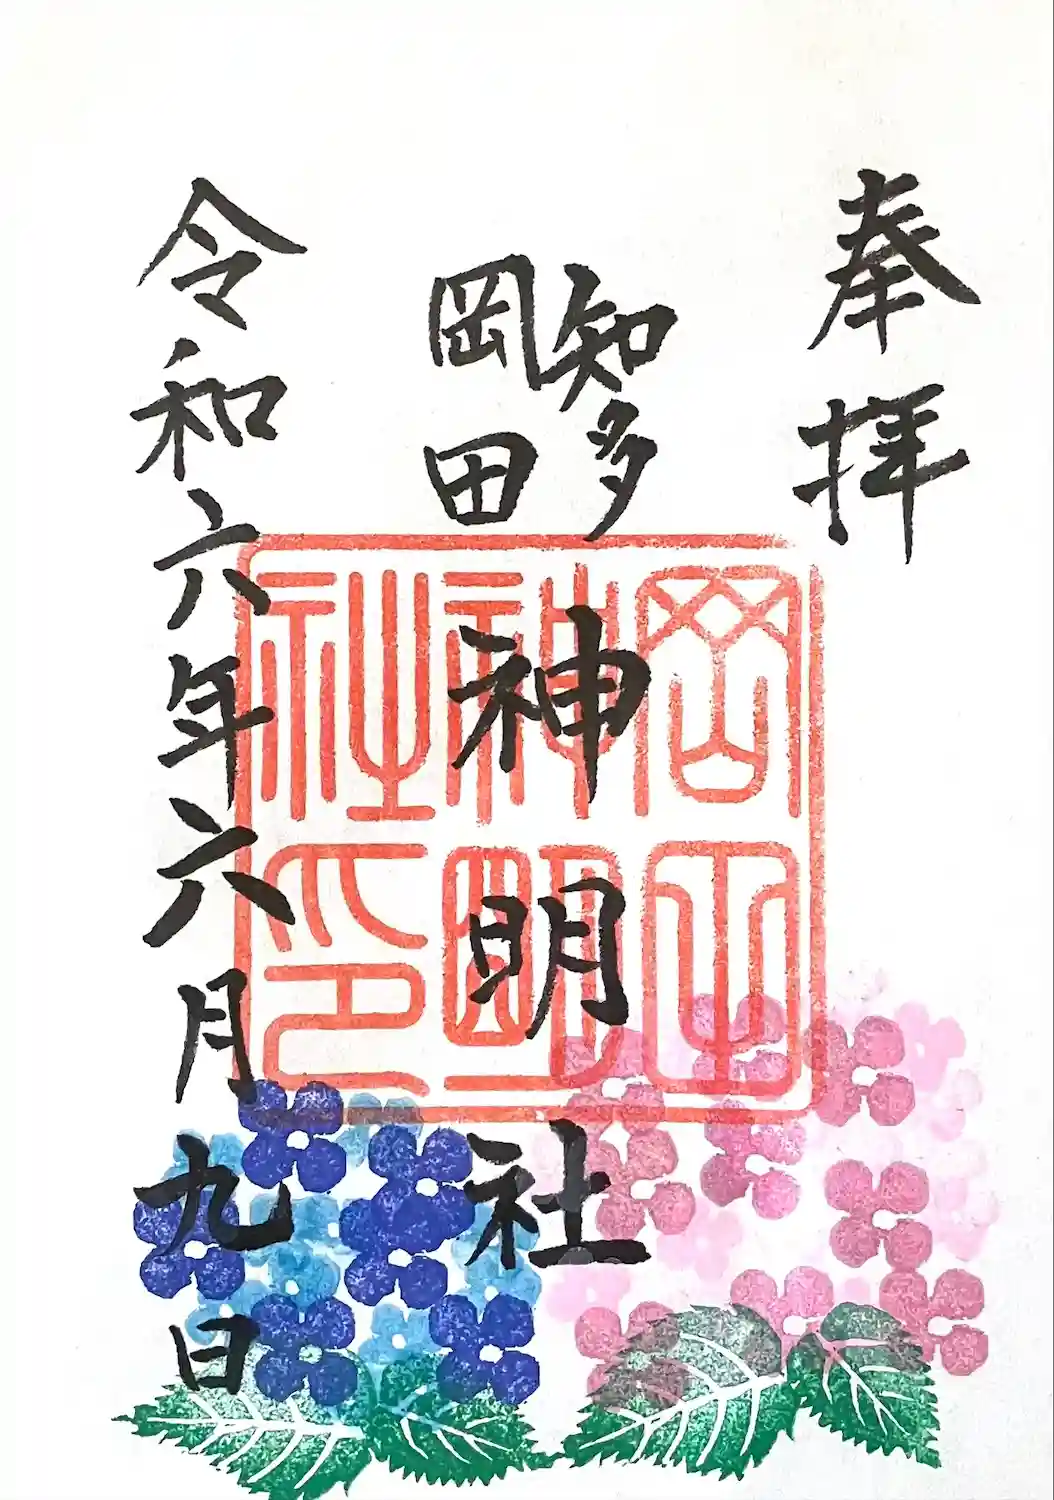 奉拝
知多
岡田
神明社
岡田
神明
社印
令和六年六月九日